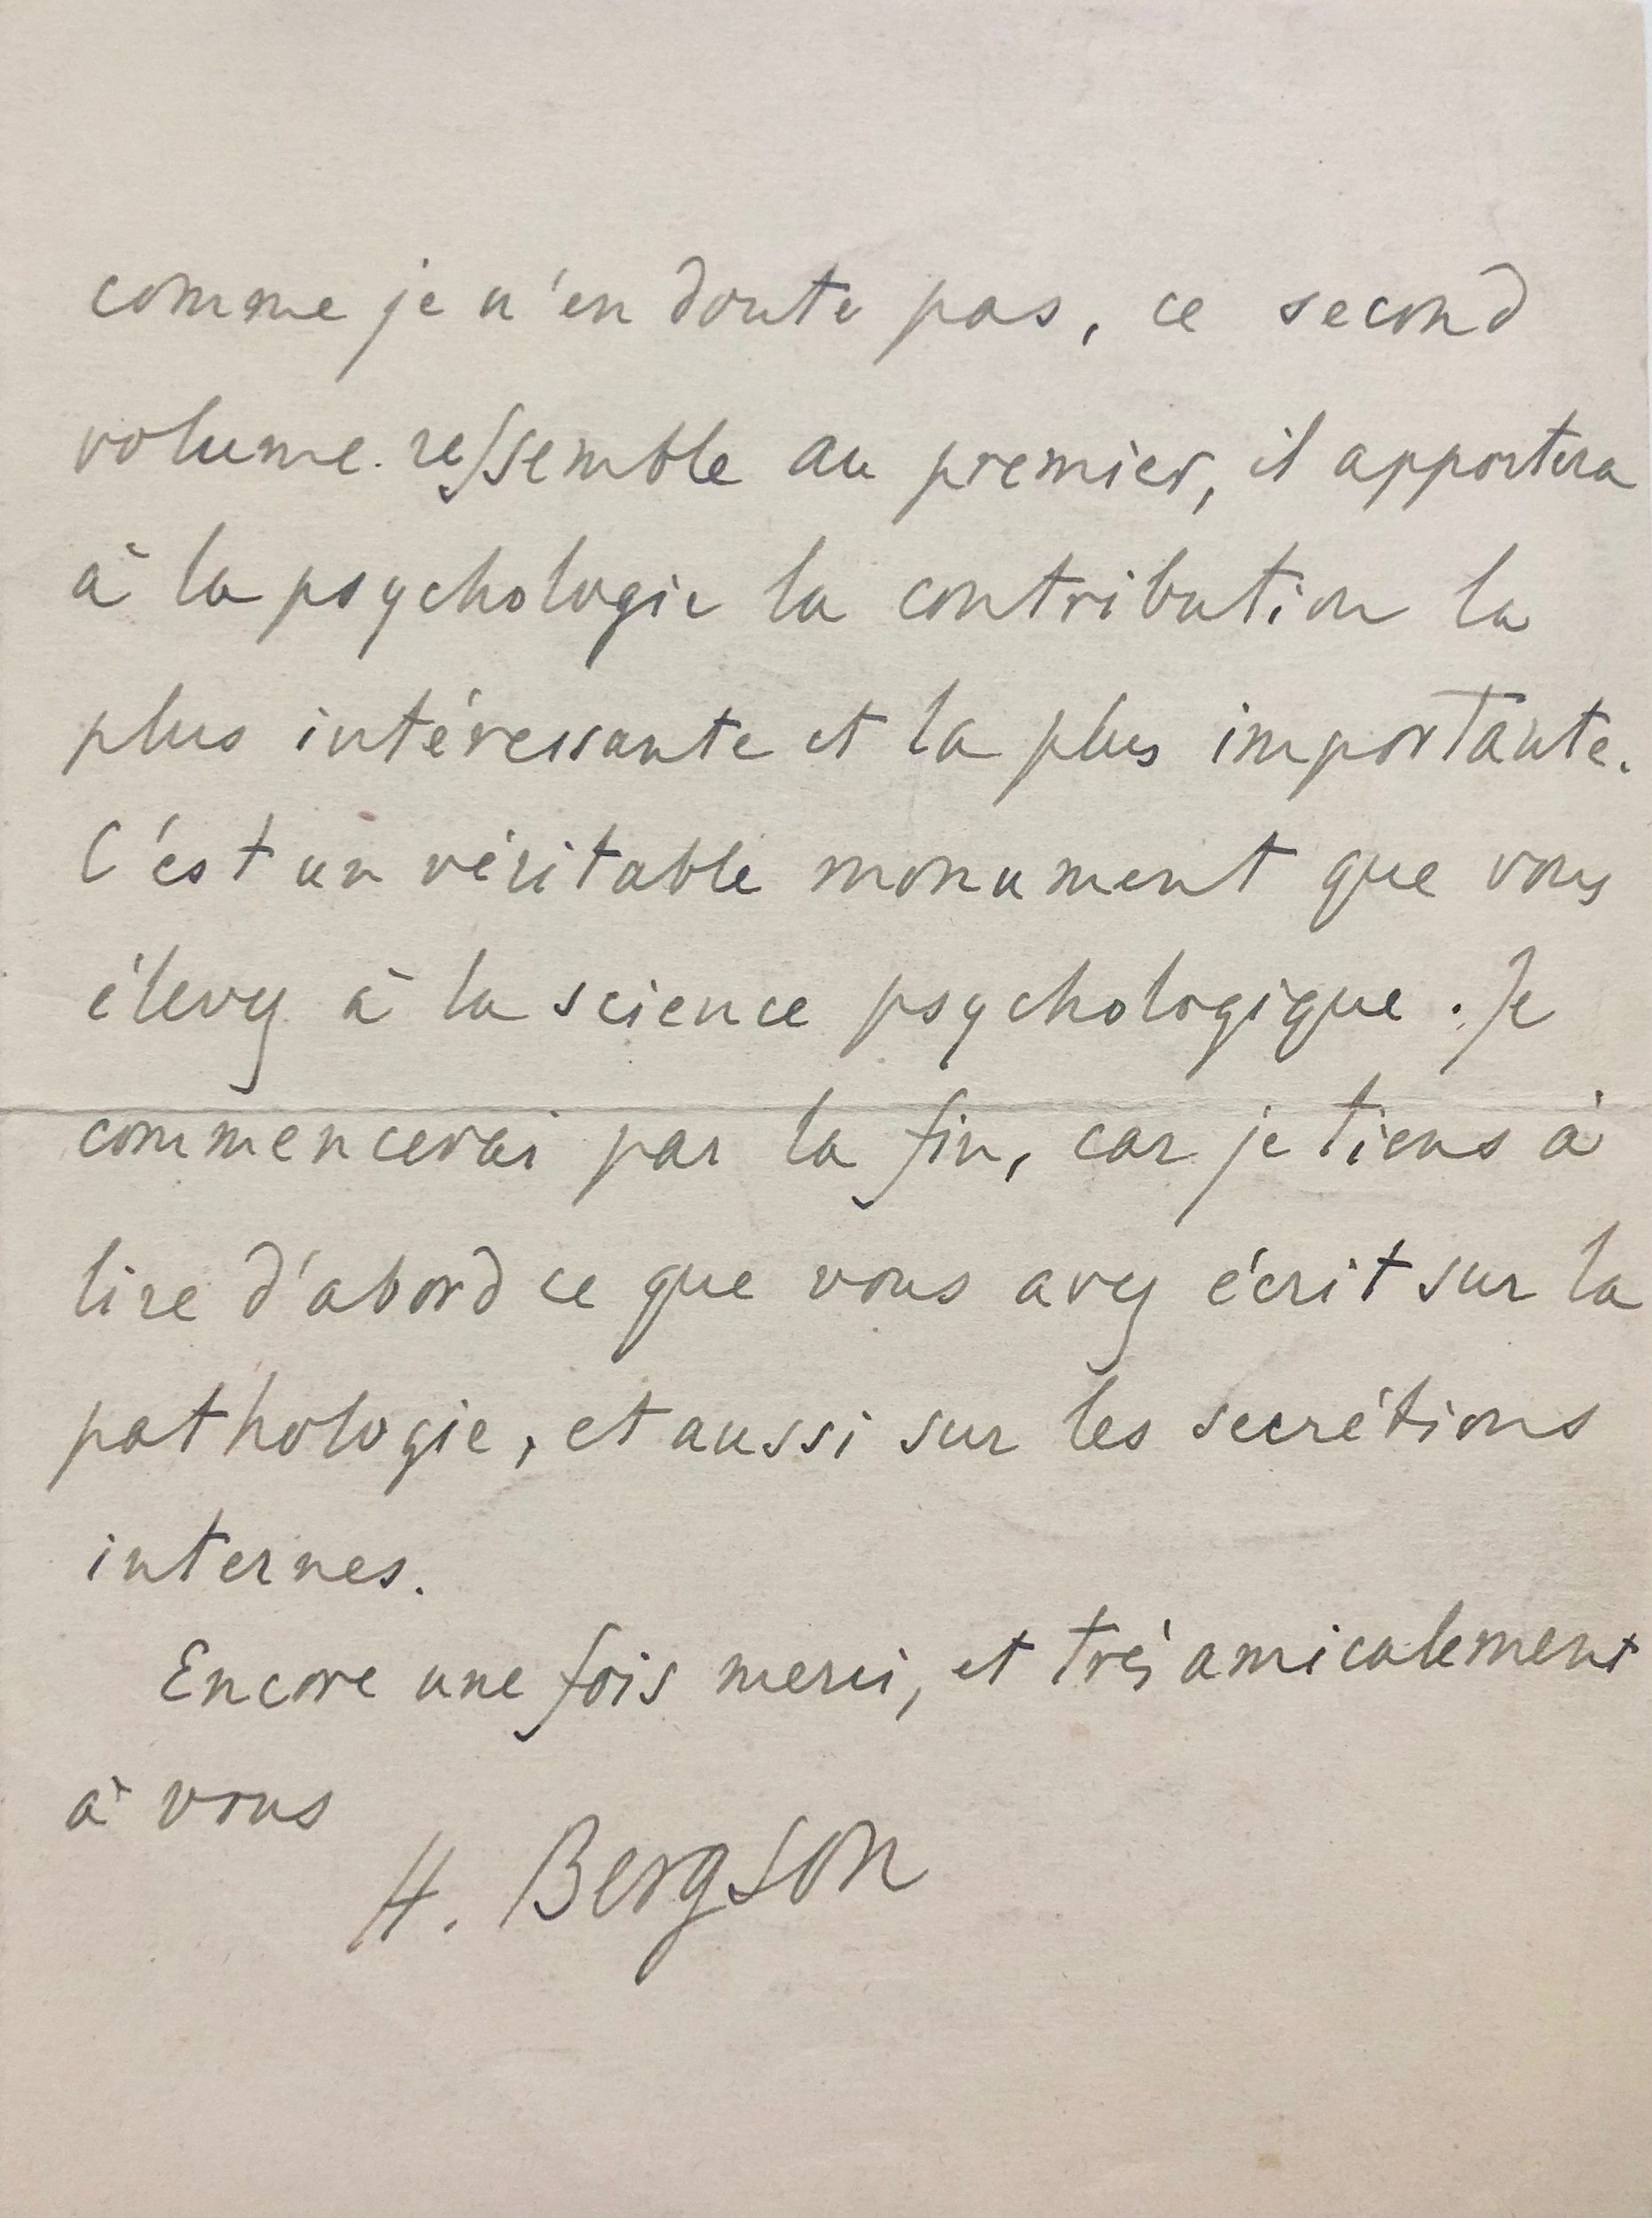 comme je n'en doute pas, ce second
volume ressemble au premier, il apportera
à la psychologie la contribution la
plus intéressante et la plus importante.
C'est un véritable monument que vous
élevez à la science psychologique. Je
commencerai par la fin, car je tiens à
lire d'abord ce que vous avez écrit sur la
pathologie, et aussi sur les secrétions
internes.
Encore une fois merci, et très amicalement
à vous
H. Bergson